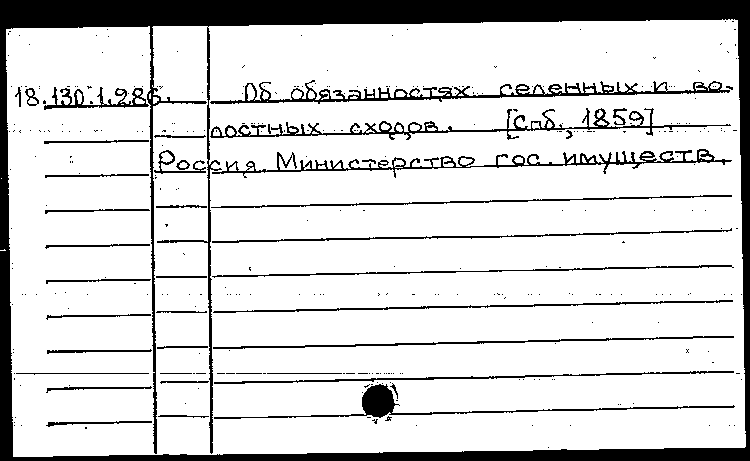 18.130.1.286. Об обязанностях селенных и во-
лостных сходов. [Спб., 1859].
Россия. Министерство гос. имуществ.